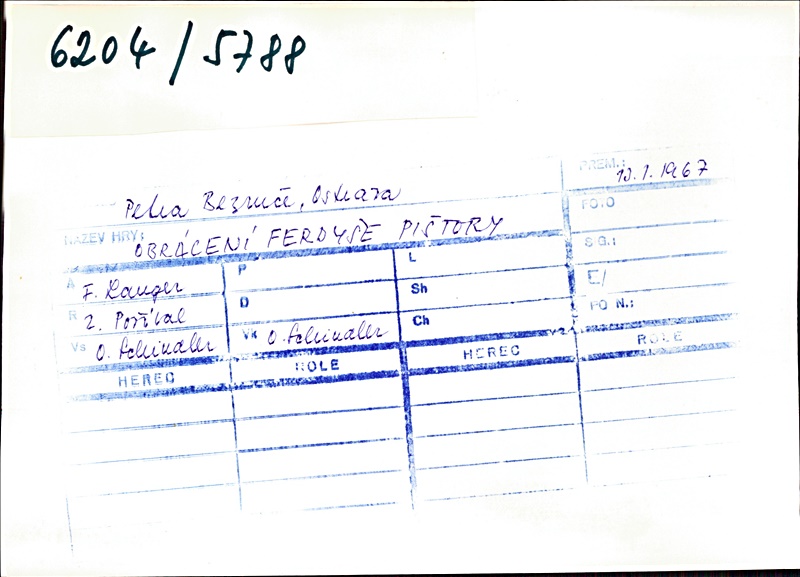 6204/5788
PREM.: 10.1.1967
Petra Bezruče, Ostrava
FOTO
NÁZEV HRY: OBRÁCENÍ FERDYŠE PIŠTORY
SG.:
A F. Langer P L
E/
R Z. Pošíval D Sh
PO N.:
Vs O. Schindler Vk O. Schindler Ch
HEREC ROLE HEREC ROLE